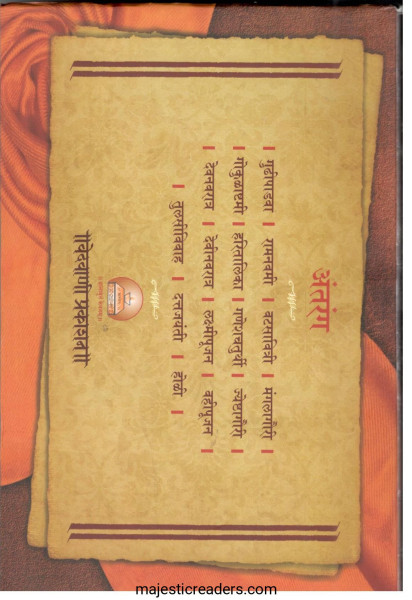 अंतरंग
। गुढीपाडवा । रामनवमी । वटसावित्री । मंगळागौरी ।
। गोकुळाष्टमी । हरितालिका । गणेशचतुर्थी । ज्येष्ठागौरी ।
। देवनवरात्र । देवीनवरात्र । लक्ष्मीपूजन । वहीपूजन ।
। तुलसीविवाह । दत्तजयंती । होळी ।
majesticreaders.com